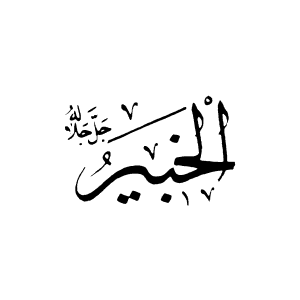 الخبيرُ
جَلَّ جَلَالُهُ